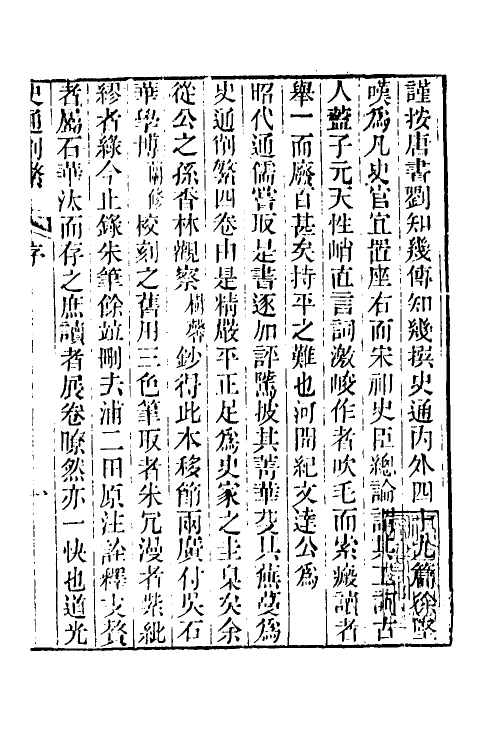 謹按唐書劉知幾傳知幾撰史通內外四十九篇徐堅
嘆為凡史官宜置座右而宋祁史臣總論謂其工訶古
人蓋子元天性峭直言詞激峻作者吹毛而索瘢讀者
舉一而廢百甚矣持平之難也河間紀文達公為
昭代通儒嘗取是書逐加評騭披其菁華芟其蕪蔓為
史通削繁四卷由是精嚴平正足為史家之圭臬矣余
從公之孫香林觀察樹馨鈔得此本移節兩廣付吳石
華學博蘭修校刻之舊用三色筆取者朱冗漫者紫紕
繆者綠今止錄朱筆餘竝刪去浦二田原注詮釋支贅
者屬石華汰而存之庶讀者展卷瞭然亦一快也道光
史通削繁 序 一